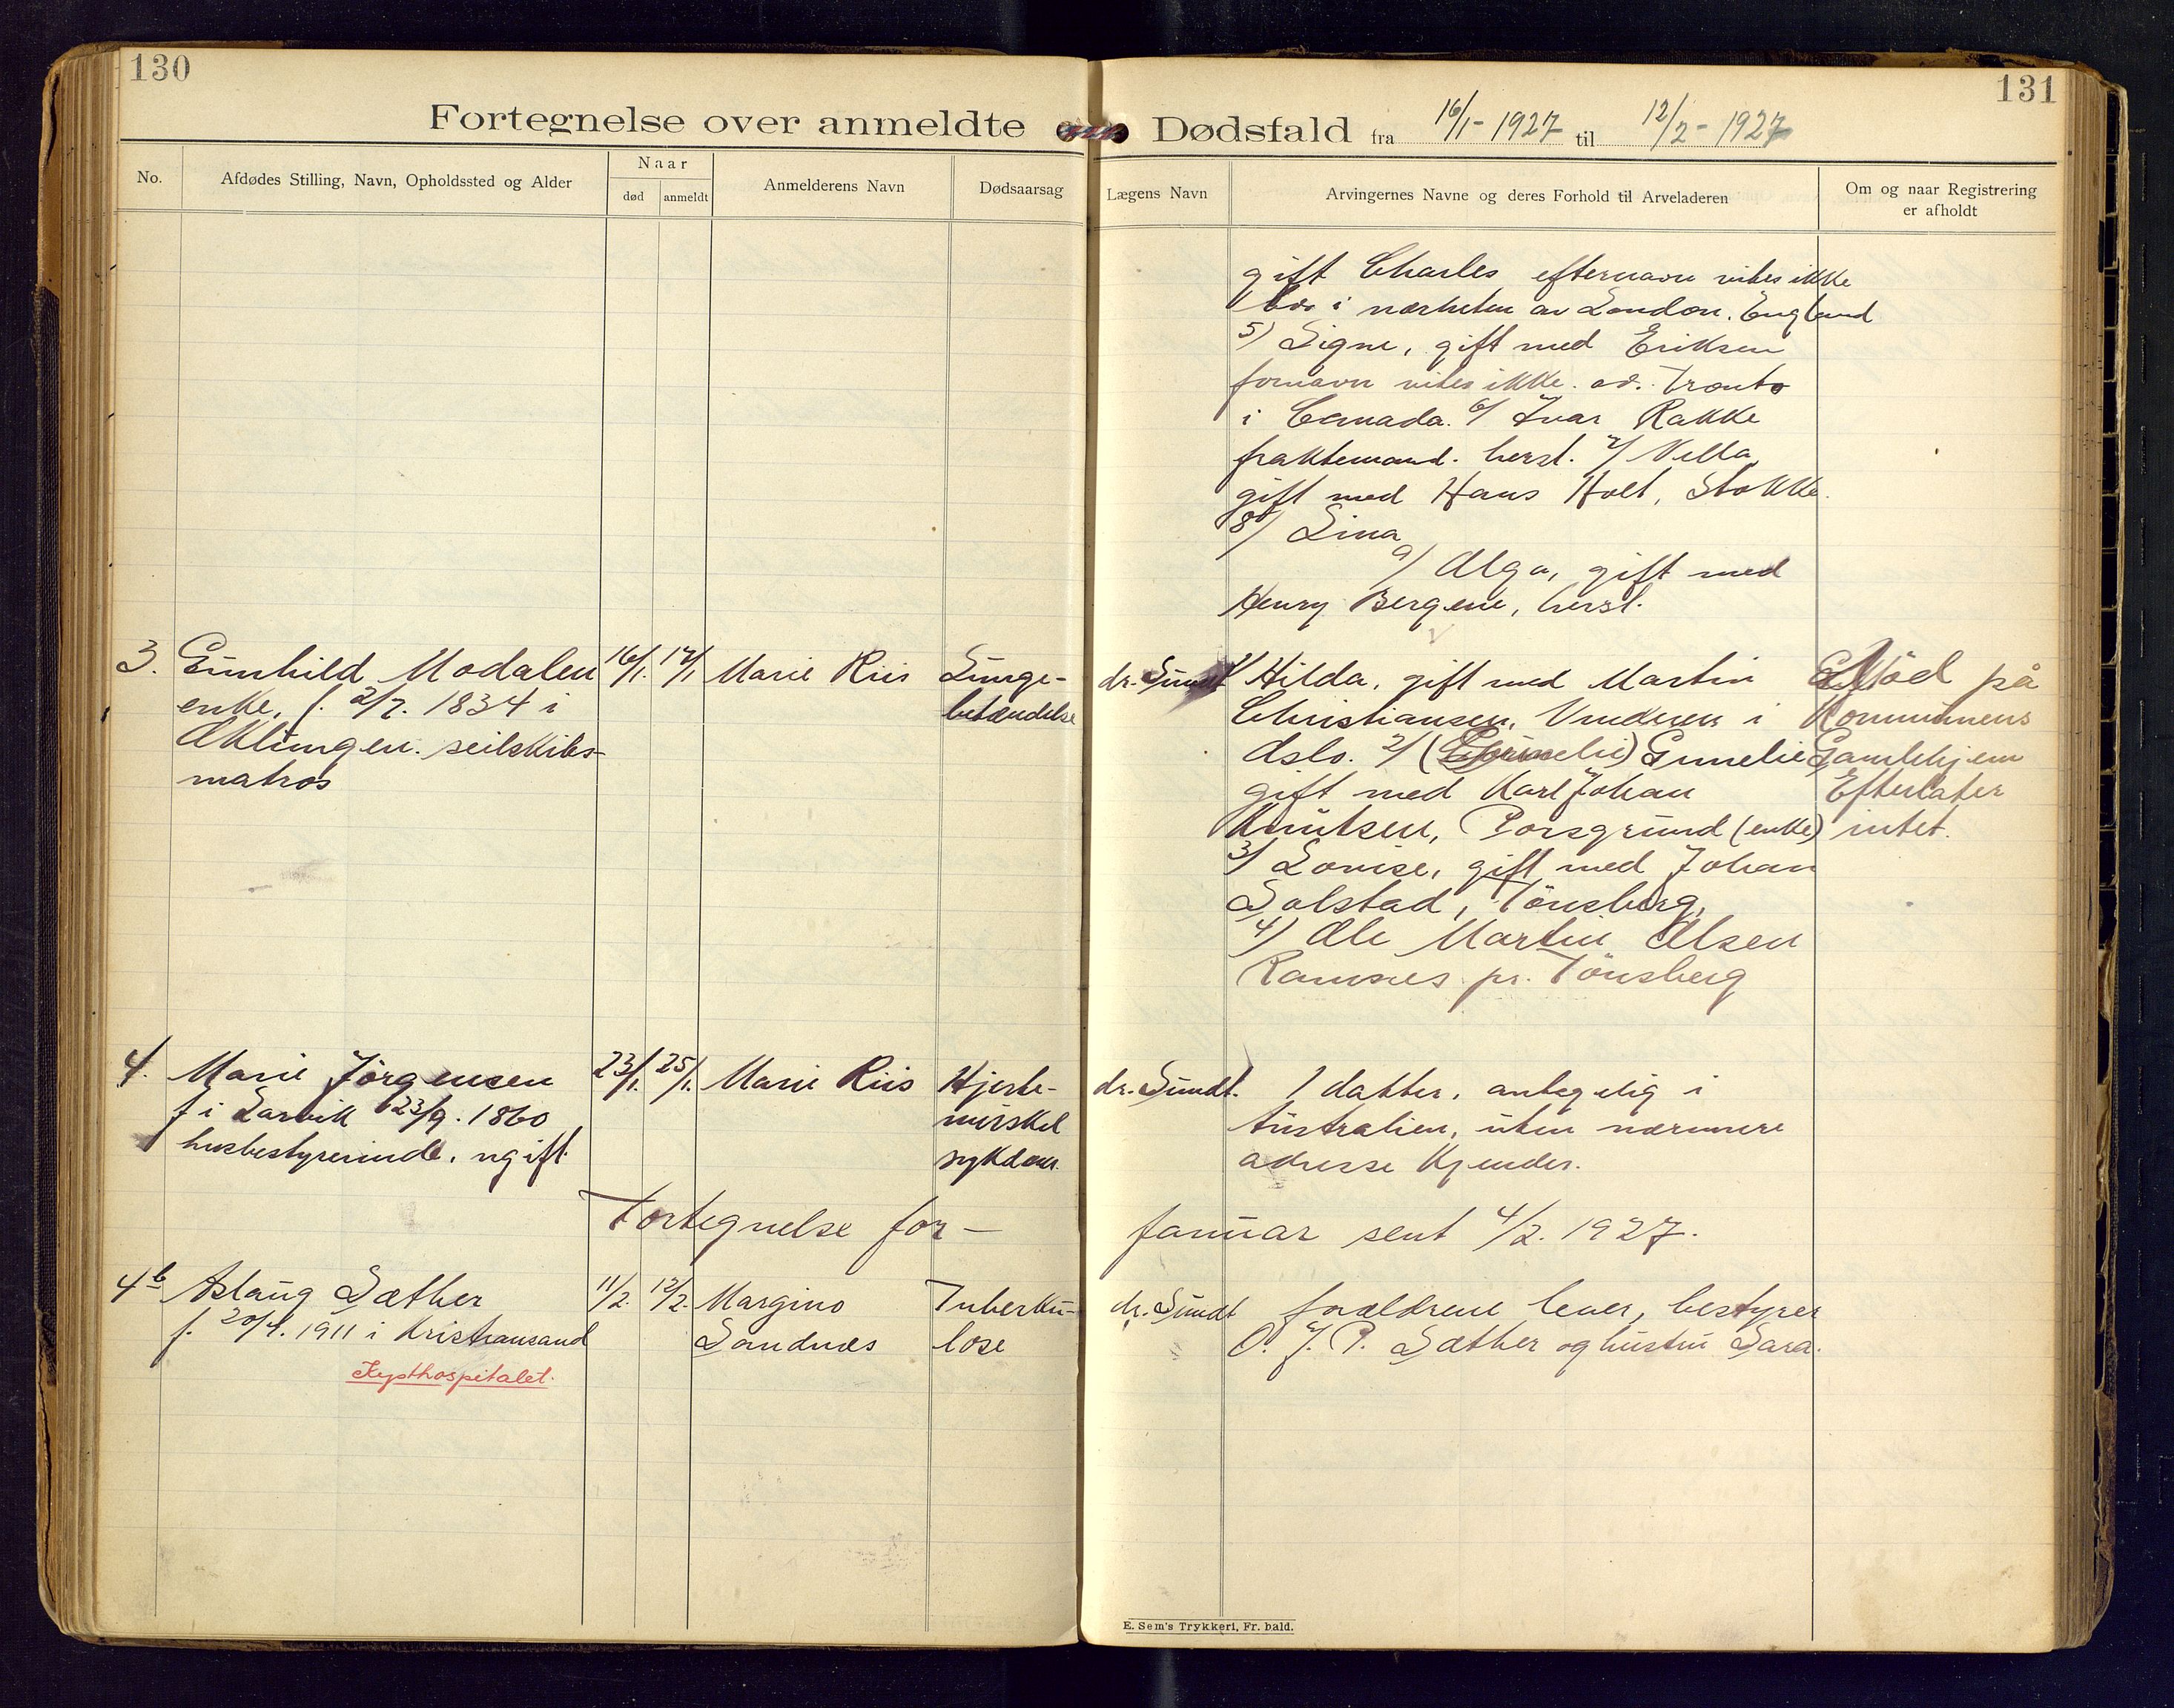 130
131
Fortegnelse over anmeldte Dødsfald fra 16/1 - 1927 til 12/2 - 1927
No.
Afdødes Stilling, Navn, Opholdssted og Alder
Naar
død
anmeldt
Anmelderens Navn
Dødsaarsag
Lægens Navn
Arvingernes Navne og deres Forhold til Arveladeren
Om og naar Registrering
er afholdt
gift Charles efternavn vites ikke
bor i nærheten av London. England
5) Signe, gift med Eriksen
fornavn vites ikke. ad. Tronto
i Canada. 6/ Ivar Rakke
fraktemand. herst. 7/ Nella
gift med Hans Holt, Stokke.
8/ Lina
9/ Olga, gift med
Henry Bergene, herst.
3. Gunhild Modalen 16/1. 17/1 Marie Riis Lunge-
enke, f. 2/7. 1834 i betændelse
Eklungen. seilskibs-
matros
dr. Sundt 1/ Hilda, gift med Martin
Christiansen, Vinderen i
Oslo. 2/ Gunelie
gift med Karl Johan
Knutsen, Porsgrund (enke)
3/ Lovise, gift med Johan
Solstad, Tönsberg,
4) Ole Martin Olsen
Ramnes pr. Tönsberg
död på
Kommunens
Gamlehjem
Efterlater
intet.
4. Marie Jörgensen 23/1. 25/1. Marie Riis Hjerte-
f i Larvik 23/9. 1860 muskel
husbestyrerinde. ugift. sykdom.
dr. Sundt. 1 datter, antagelig i
Australien, uten nærmere
adresse kjender.
Fortegnelse for - Januar sent 4/2. 1927.
4b Aslaug Sæther 11/2. 12/2. Margino Tuberku-
f. 20/4. 1911 i Kristiansand Sandnes lose
Kysthospitalet.
dr. Sundt forældrene lever, bestyrer
O. J. P. Sæther og hustru Sara.
E. Sem's Trykkeri, Fr. hald.